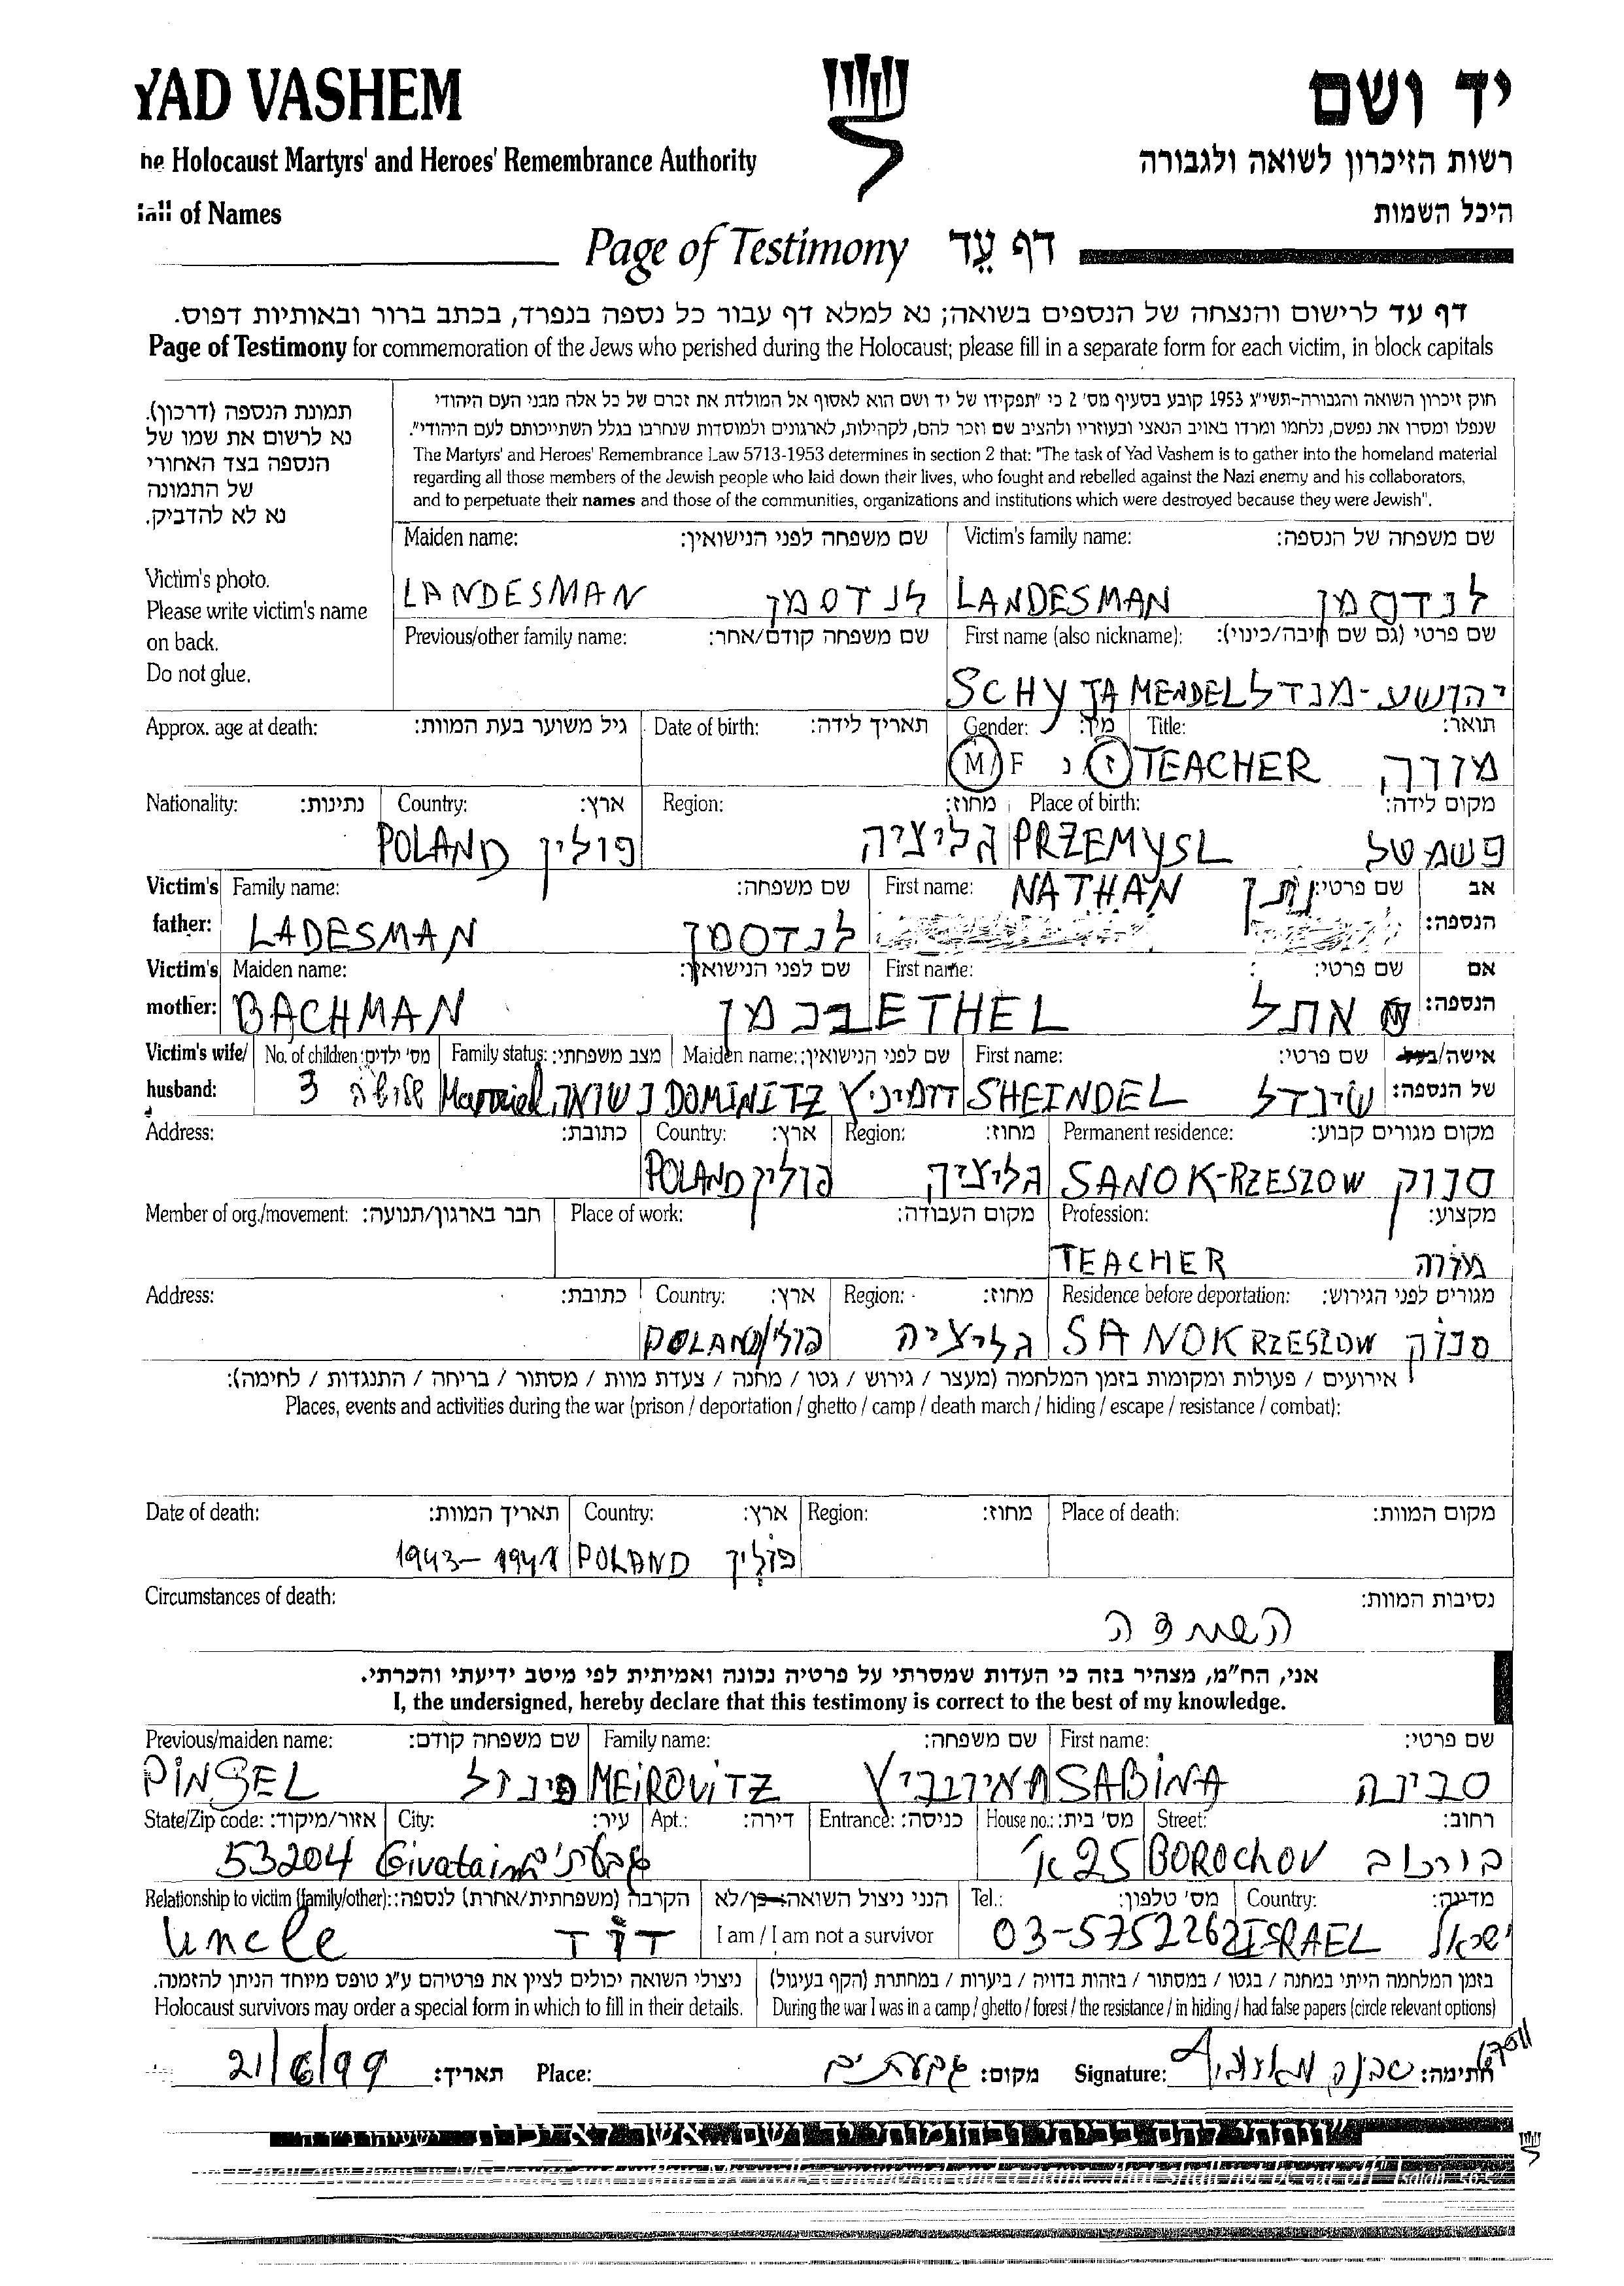 YAD VASHEM יד ושם
he Holocaust Martyrs' and Heroes' Remembrance Authority רשות הזיכרון לשואה ולגבורה
Hall of Names היכל השמות
Page of Testimony דף עֵד
דף עד לרישום והנצחה של הנספים בשואה; נא למלא דף עבור כל נספה בנפרד, בכתב ברור ובאותיות דפוס.
Page of Testimony for commemoration of the Jews who perished during the Holocaust; please fill in a separate form for each victim, in block capitals
תמונת הנספה (דרכון).
נא לרשום את שמו של
הנספה בצד האחורי
של התמונה
נא לא להדביק.
Victim's photo.
Please write victim's name
on back.
Do not glue.
חוק זיכרון השואה והגבורה-תשי"ג 1953 קובע בסעיף מס' 2 כי "תפקידו של יד ושם הוא לאסוף אל המולדת את זכרם של כל אלה מבני העם היהודי
שנפלו ומסרו את נפשם, נלחמו ומרדו באויב הנאצי ובעוזריו ולהציב שם וזכר להם, לקהילות, לארגונים ולמוסדות שנחרבו בגלל השתייכותם לעם היהודי".
The Martyrs' and Heroes' Remembrance Law 5713-1953 determines in section 2 that: "The task of Yad Vashem is to gather into the homeland material
regarding all those members of the Jewish people who laid down their lives, who fought and rebelled against the Nazi enemy and his collaborators,
and to perpetuate their names and those of the communities, organizations and institutions which were destroyed because they were Jewish".
Maiden name: שם משפחה לפני הנישואין: Victim's family name: שם משפחה של הנספה:
LANDESMAN לנדסמן LANDESMAN לנדסמן
Previous/other family name: שם משפחה קודם/אחר: First name (also nickname): שם פרטי (גם שם חיבה/כינוי):
SCHYJA MENDEL יהושע-מנדל
Approx. age at death: גיל משוער בעת המוות: Date of birth: תאריך לידה: Gender: מין: Title: תואר:
M/F ז נ TEACHER מורה
Nationality: נתינות: Country: ארץ: Region: מחוז: Place of birth: מקום לידה:
POLAND פולין גליציה PRZEMYSL פשמשל
Victim's father: Family name: שם משפחה: First name: NATHAN נתן שם פרטי: אב הנספה:
LADESMAN לנדסמן
Victim's mother: Maiden name: שם לפני הנישואין: First name: שם פרטי: אם הנספה:
BACHMAN בכמן ETHEL אתל
Victim's wife/ husband: No. of children: מס' ילדים: Family status: מצב משפחתי: Maiden name: שם לפני הנישואין: First name: שם פרטי: אישה/בעל של הנספה:
3 שלושה Married נשואה DOMINITZ דומיניץ SHEINDEL שינדל
Address: כתובת: Country: ארץ: Region: מחוז: Permanent residence: מקום מגורים קבוע:
POLAND פולין גליציה SANOK-RZESZOW סנוק
Member of org./movement: חבר בארגון/תנועה: Place of work: מקום העבודה: Profession: מקצוע:
TEACHER מורה
Address: כתובת: Country: ארץ: Region: מחוז: Residence before deportation: מגורים לפני הגירוש:
POLAND פולין גליציה SANOK RZESZOW סנוק
אירועים / פעולות ומקומות בזמן המלחמה (מעצר / גירוש / גטו / מחנה / צעדת מוות / מסתור / בריחה / התנגדות / לחימה):
Places, events and activities during the war (prison / deportation / ghetto / camp / death march / hiding / escape / resistance / combat):
Date of death: תאריך המוות: Country: ארץ: Region: מחוז: Place of death: מקום המוות:
1943-1941 POLAND פולין
Circumstances of death: נסיבות המוות:
השמדה
אני, הח"מ, מצהיר בזה כי העדות שמסרתי על פרטיה נכונה ואמיתית לפי מיטב ידיעתי והכרתי.
I, the undersigned, hereby declare that this testimony is correct to the best of my knowledge.
Previous/maiden name: שם משפחה קודם: Family name: שם משפחה: First name: שם פרטי:
PINSEL פינזל MEIROVITZ מאירוביץ SABINA סבינה
State/Zip code: אזור/מיקוד: City: עיר: Apt.: דירה: Entrance: כניסה: House no.: מס' בית: Street: רחוב:
53204 Givataim גבעתיים 25 א' BOROCHOV בורוכוב
Relationship to victim (family/other): הקרבה (משפחתית/אחרת) לנספה: הנני ניצול השואה: כן/לא Tel.: מס' טלפון: Country: מדינה:
Uncle דוד I am / I am not a survivor 03-5752262 ISRAEL ישראל
ניצולי השואה יכולים לציין את פרטיהם ע"ג טופס מיוחד הניתן להזמנה. בזמן המלחמה הייתי במחנה / בגטו / במסתור / בזהות בדויה / ביערות / במחתרת (הקף בעיגול)
Holocaust survivors may order a special form in which to fill in their details. During the war I was in a camp / ghetto / forest / the resistance / in hiding / had false papers (circle relevant options)
21/6/99 תאריך: Place: גבעתיים מקום: Signature: חתימה: